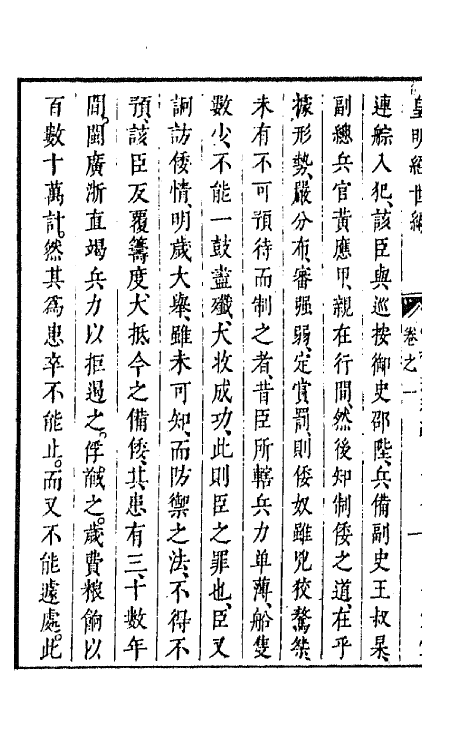 皇明經世編
卷之一
連䑸入犯、該臣與巡按御史邵陛、兵備副史王叔杲、
副總兵官黃應甲、親在行間、然後知制倭之道、在乎
據形勢、嚴分布、審强弱、定賞罰、則倭奴雖兇狡驁桀、
未有不可預待而制之者、昔臣所轄兵力单薄、船隻
數少、不能一鼓盡殲、大收成功、此則臣之罪也、臣又
詗訪倭情、明歲大舉、雖未可知、而防禦之法、不得不
預、該臣反覆籌度、大抵今之備倭、其患有三、十數年
間。閩廣浙直竭兵力以拒遏之。俘馘之。歲費粮餉以
百數十萬計。然其爲患卒不能止。而又不能遠處。此